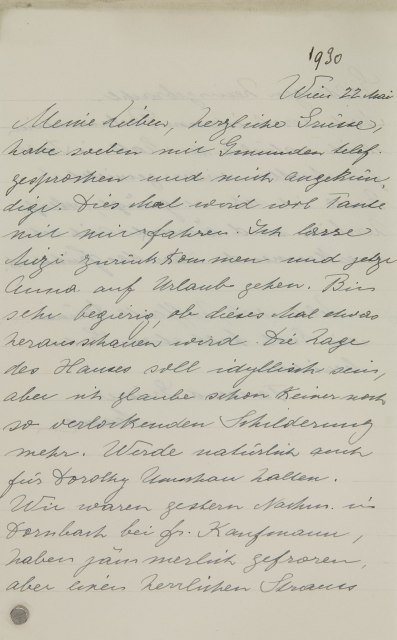 1930
Wien 22 Mai
Meine Lieben, herzliche Grüsse,
habe soeben mit Gmunden telef.
gesprochen und mich angekün-
digt. Dies Mal wird wol Tante
mit mir fahren. Ich lasse
Mizi zurück kommen und jetzt
Anna auf Urlaub gehen. Bin
sehr begierig, ob dieses Mal etwas
herausschauen wird. Die Lage
des Hauses soll idyllisch sein,
aber ich glaube schon keiner noch
so verlockenden Schilderung
mehr. Werde natürlich auch
für Dorothy Umschau halten.
Wir waren gestern Nachm. in
Dornbach bei Fr. Kaufmann,
haben jämmerlich gefroren,
aber einen herrlichen Strauss